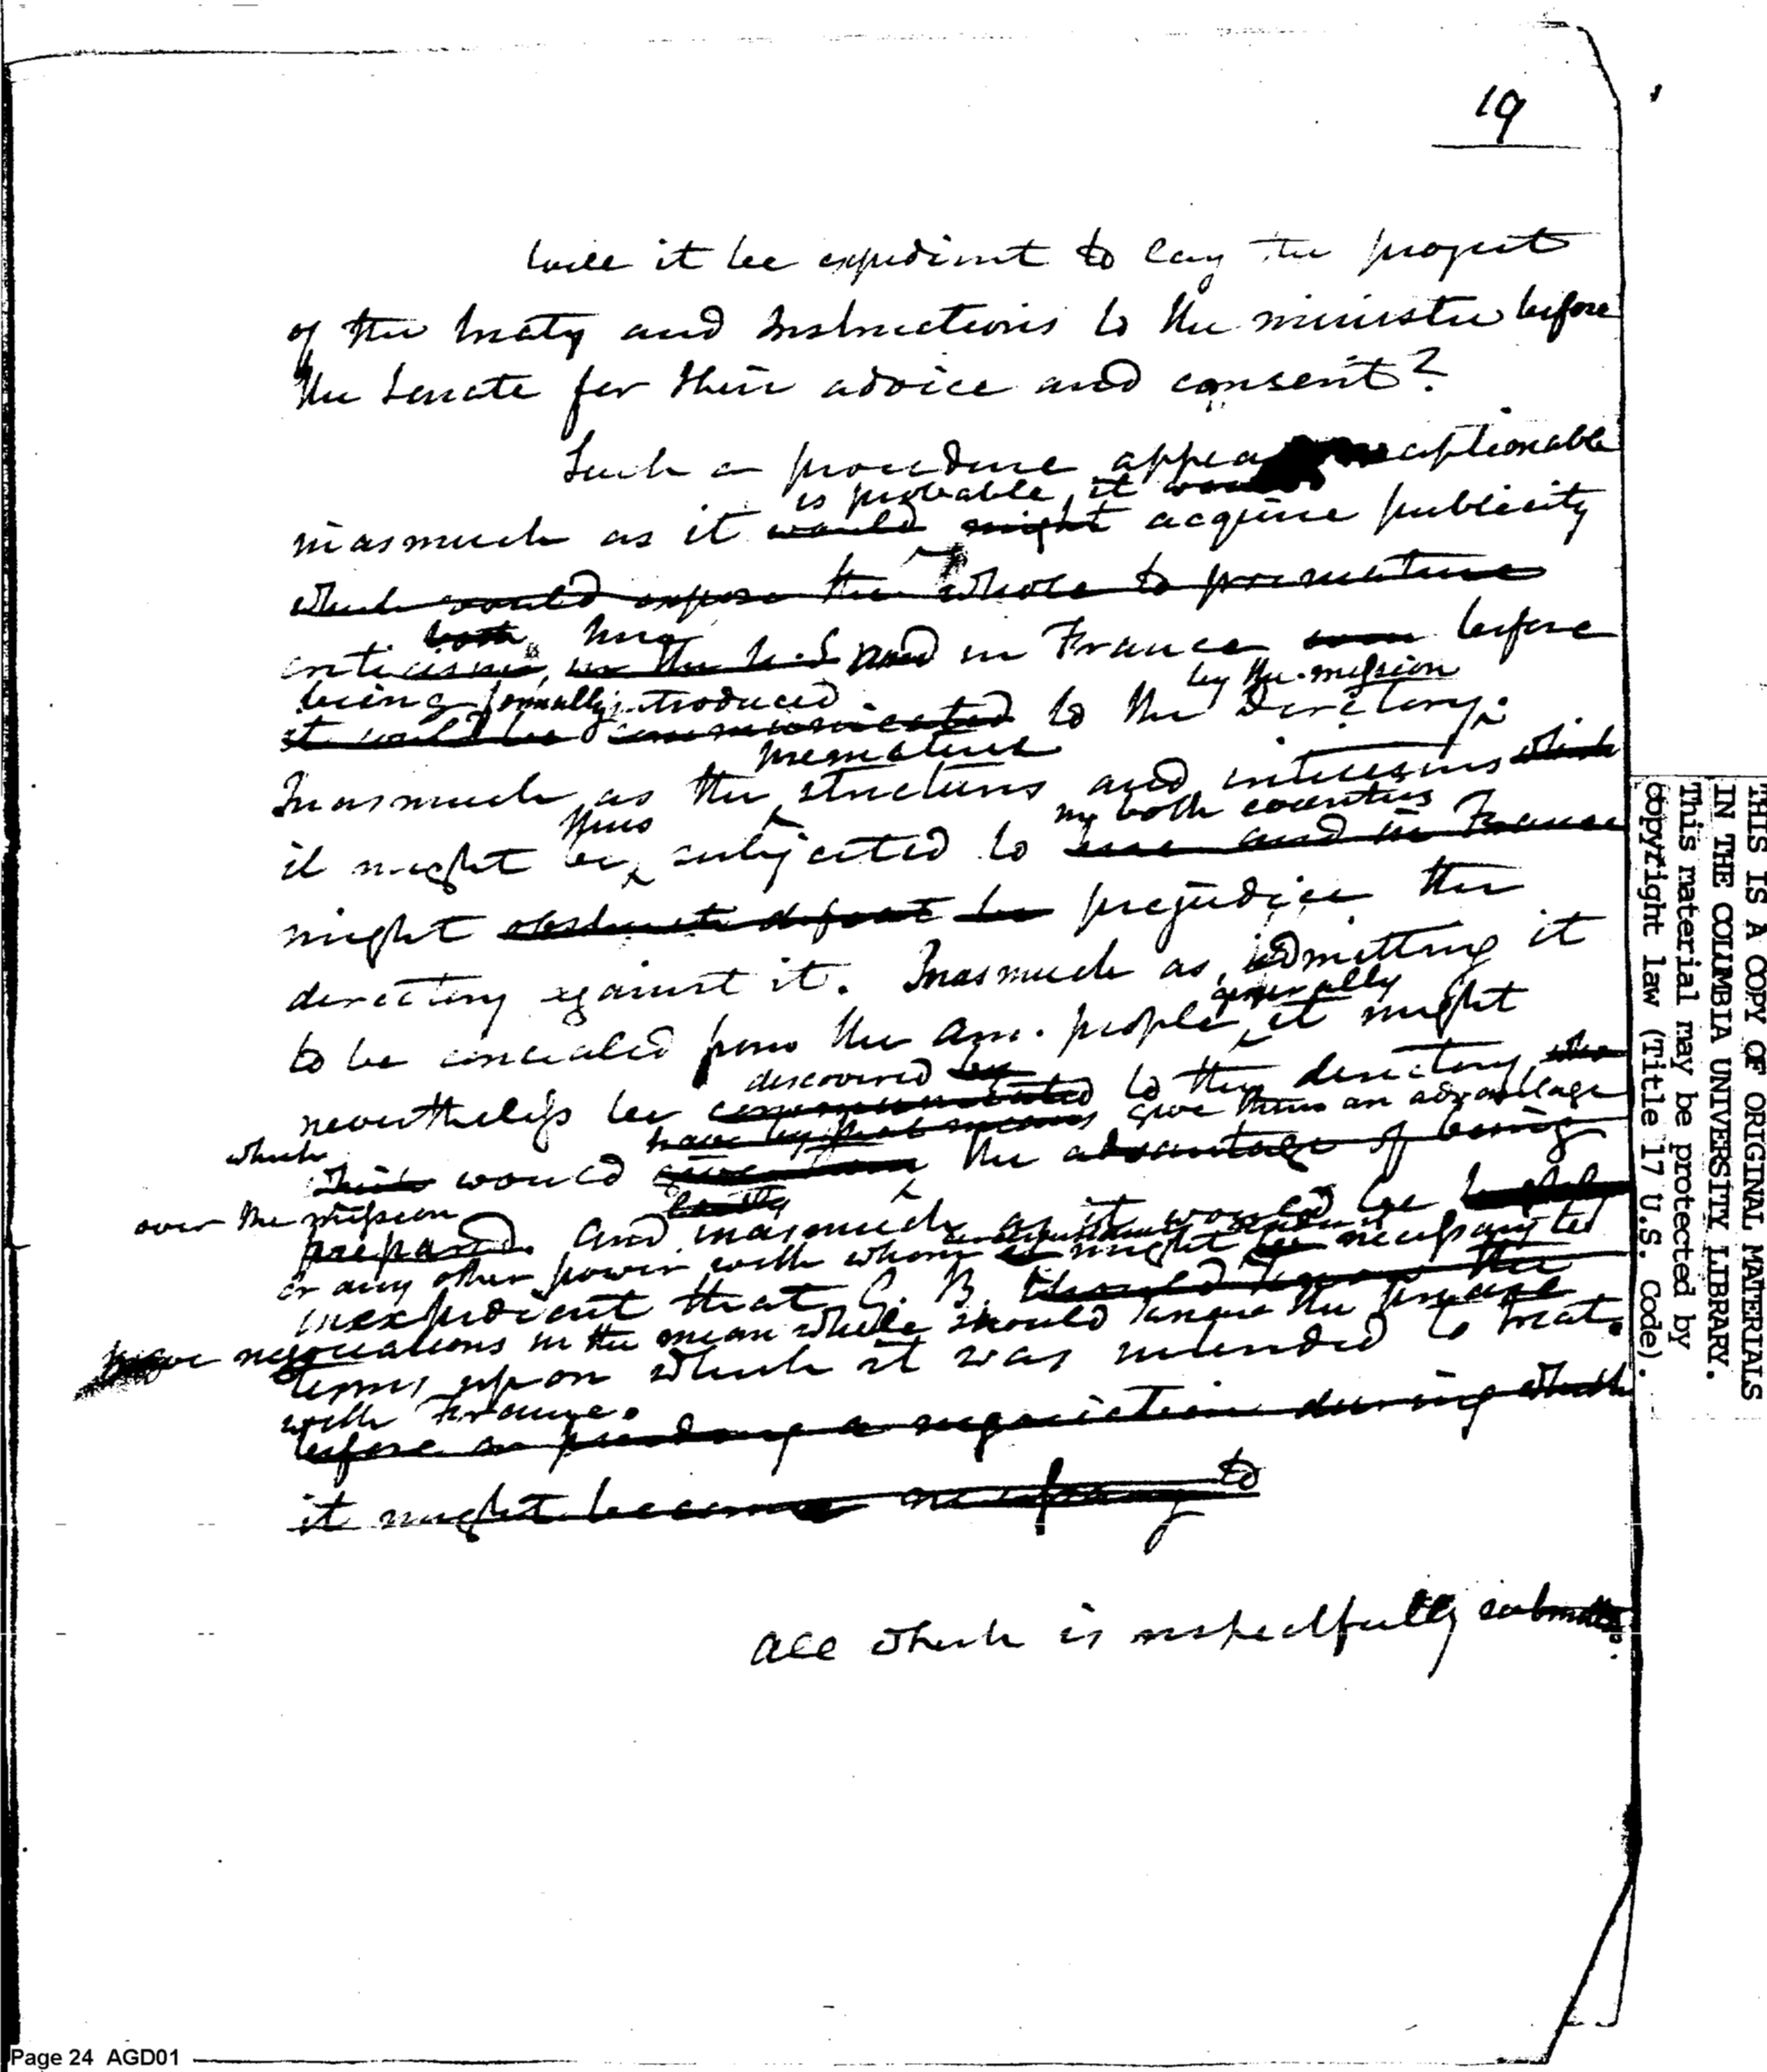 19
Will it be expedient to lay the project
of the treaty and Instructions to the minister before
the Senate for their advice and consent?
Such a procedure appea exceptionable
is probable, it would
inasmuch as it would might acquire publicity
which would expose the whole to premature
both here
criticism, in the U.S and in France soon before
being formally introduced by the mission
it could be communicated to the Directory;
premature
Inasmuch as the strictures and criticisms which
thus in both countries
it might be subjected to here and in France
might obstruct defeat be prejudice the
directory against it. Inasmuch as, admitting it
generally
to be concealed from the Am. people, it might
discovered by
nevertheless be communicated to the directory, who
have by that means give them an advantage
which
which would give them the advantage of being
over the mission
lastly
prepared. And inasmuch as it would be
or any other power with whom it might be necessary to
inexpedient that G. B. should know the
have negociations in the mean while should know the precise
terms upon which it was intended to treat.
with France.
before or pending a negociation during which
it might become necessary to
All which is respectfully submitted.
THIS IS A COPY OF ORIGINAL MATERIALS
IN THE COLUMBIA UNIVERSITY LIBRARY.
This material may be protected by
copyright law (Title 17 U.S. Code).
Page 24 AGD01